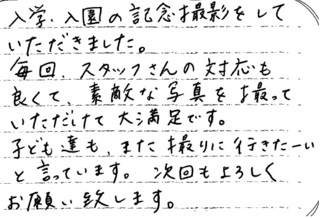 入学、入園の記念撮影をして
いただきました。
毎回、スタッフさんの対応も
良くて、素敵な写真を撮って
いただけて大満足です。
子ども達も、また撮りに行きたーい
と言っています。次回もよろしく
お願い致します。